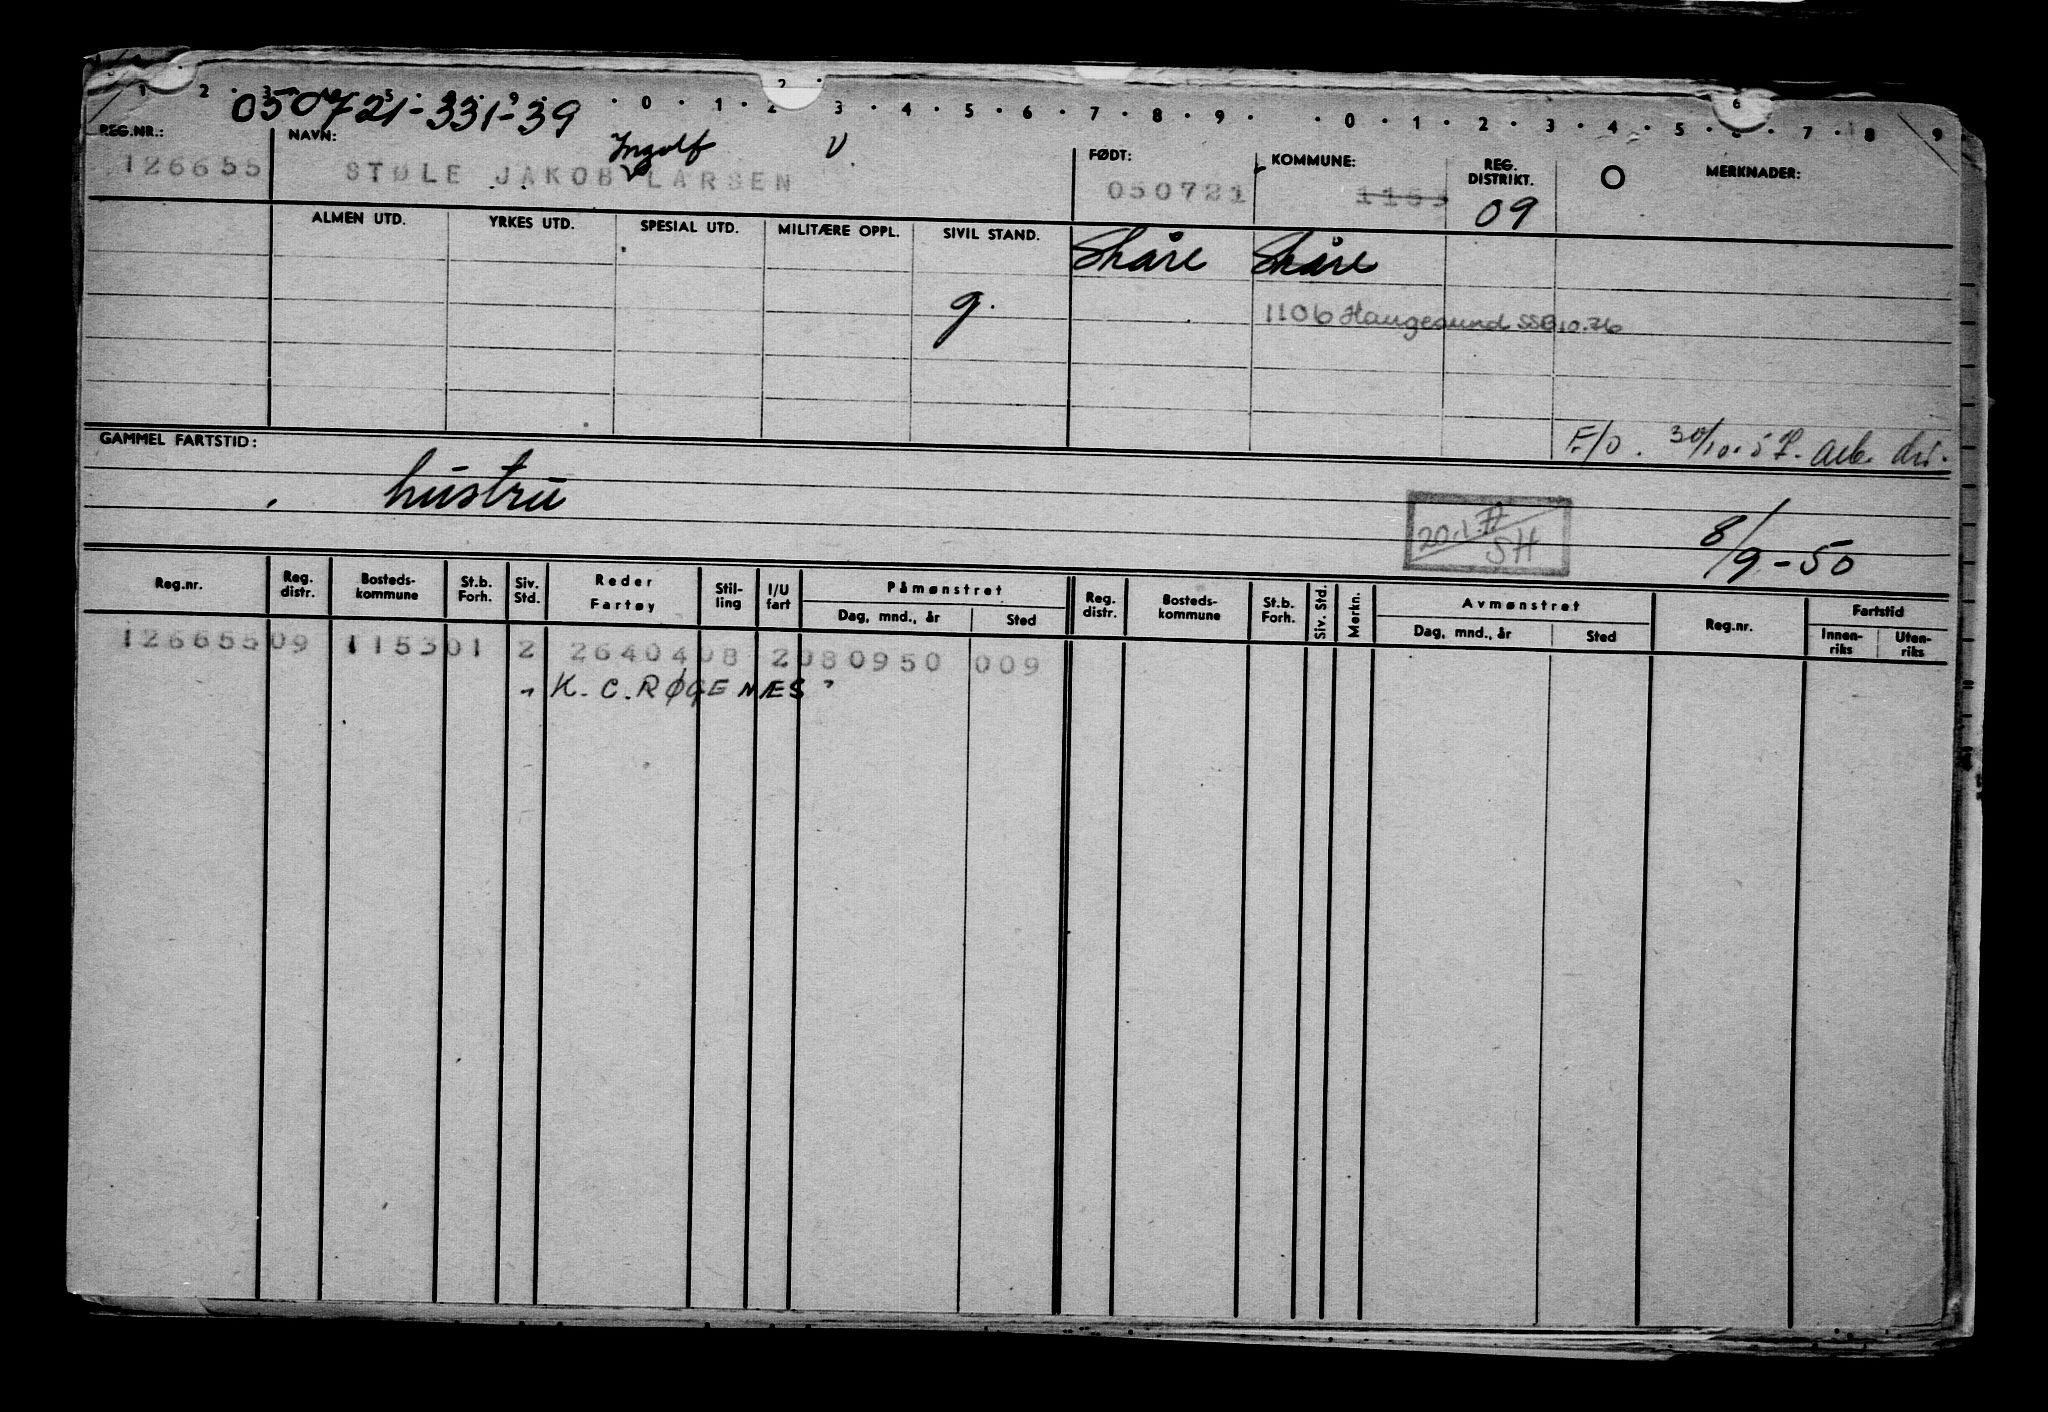 1 2 3 5 9 0 1 2 3 4 5 6 7 8 9 0 1 2 3 4 5 6 7 8 9
050721-331-39
REG.NR.: NAVN: Ingolf V FØDT: KOMMUNE: REG. DISTRIKT. O MERKNADER:
126655 STØLE JAKOB V LARSEN 050721 1153 09
ALMEN UTD. YRKES UTD. SPESIAL UTD. MILITÆRE OPPL. SIVIL STAND. Skåre Skåre
g. 1106 Haugesund SSB 10.76
F/O. 30/10.57. arb. dir.
GAMMEL FARTSTID:
hustru
20.1.77
SH
8/9-50
Reg.nr. Reg. distr. Bosteds-kommune St.b. Forh. Siv. Std. Reder Fartøy Stil-ling I/U fart Påmønstret Dag, mnd., år Sted Reg. distr. Bosteds-kommune St.b. Forh. Siv. Std. Merkn. Avmønstret Dag, mnd., år Sted Reg.nr. Fartstid Innen-riks Uten-riks
126655 09 1153 01 2 26404 08 2 080950 009
"K. C. RØGENÆS"